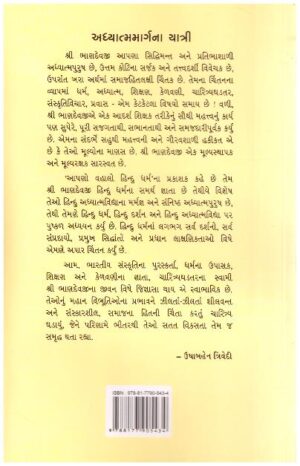 અધ્યાત્મમાર્ગના યાત્રી
શ્રી ભાણદેવજી આપણા સિદ્ધિમન્ત અને પ્રતિભાશાળી
અધ્યાત્મપુરુષ છે, ઉત્તમ કોટિના સર્જક અને તત્ત્વદર્શી વિવેચક છે,
ઉપરાંત ખરા અર્થમાં સમાજહિતલક્ષી ચિંતક છે. તેમના ચિંતનના
વ્યાપમાં ધર્મ, અધ્યાત્મ, શિક્ષણ, કેળવણી, ચારિત્ર્યઘડતર,
સંસ્કૃતિવિચાર, પ્રવાસ - એમ કેટકેટલા વિષયો સમાય છે ! વળી,
શ્રી ભાણદેવજીએ એક આદર્શ શિક્ષક તરીકેનું સૌથી મહત્ત્વનું કાર્ય
પણ સુપેરે, પૂરી સજગતાથી, સભાનતાથી અને સમજદારીપૂર્વક કર્યું
છે. એમના સંદર્ભે સહુથી મહત્ત્વની અને ગૌરવશાળી હકીકત એ
છે કે તેઓ મૂલ્યોના માણસ છે. શ્રી ભાણદેવજી એક મૂલ્યસ્થાપક
અને મૂલ્યરક્ષક સારસ્વત છે.
'આપણો વહાલો હિન્દુ ધર્મ'ના પ્રકાશક કહે છે તેમ
શ્રી ભાણદેવજી હિન્દુ ધર્મના સમર્થ જ્ઞાતા છે તેથીયે વિશેષ
તેઓ હિન્દુ અધ્યાત્મવિદ્યાના મર્મજ્ઞ અને સંનિષ્ઠ અધ્યાત્મપુરુષ છે,
તેથી તેમણે હિન્દુ ધર્મ, હિન્દુ દર્શન અને હિન્દુ અધ્યાત્મવિદ્યા પર
પુષ્કળ અધ્યયન કર્યું છે. હિન્દુ ધર્મનાં લગભગ સર્વ દર્શનો, સર્વ
સંપ્રદાયો, પ્રમુખ સિદ્ધાંતો અને પ્રધાન લાક્ષણિકતાઓ વિષે
એમણે અપાર ચિંતન કર્યું છે.
આમ, ભારતીય સંસ્કૃતિના પુરસ્કર્તા, ધર્મના ઉપાસક,
શિક્ષણ અને કેળવણીના જ્ઞાતા, ચારિત્ર્યઘડતરના સ્વામી
શ્રી ભાણદેવજીના જીવન વિષે જિજ્ઞાસા થાય એ સ્વાભાવિક છે.
તેઓનું મહાન વિભૂતિઓના પ્રભાવને ઝીલતાં-ઝીલતાં શીલવન્ત
અને સંસ્કારશીલ, સમાજના હિતની ચિંતા કરતું ચારિત્ર્ય
ઘડાયું, જેને પરિણામે ભીતરથી તેઓ સતત વિકસતા તેમ જ
સમૃદ્ધ થતા રહ્યા.
– ઉષાબહેન ત્રિવેદી
ISBN 978-81-7790-543-4